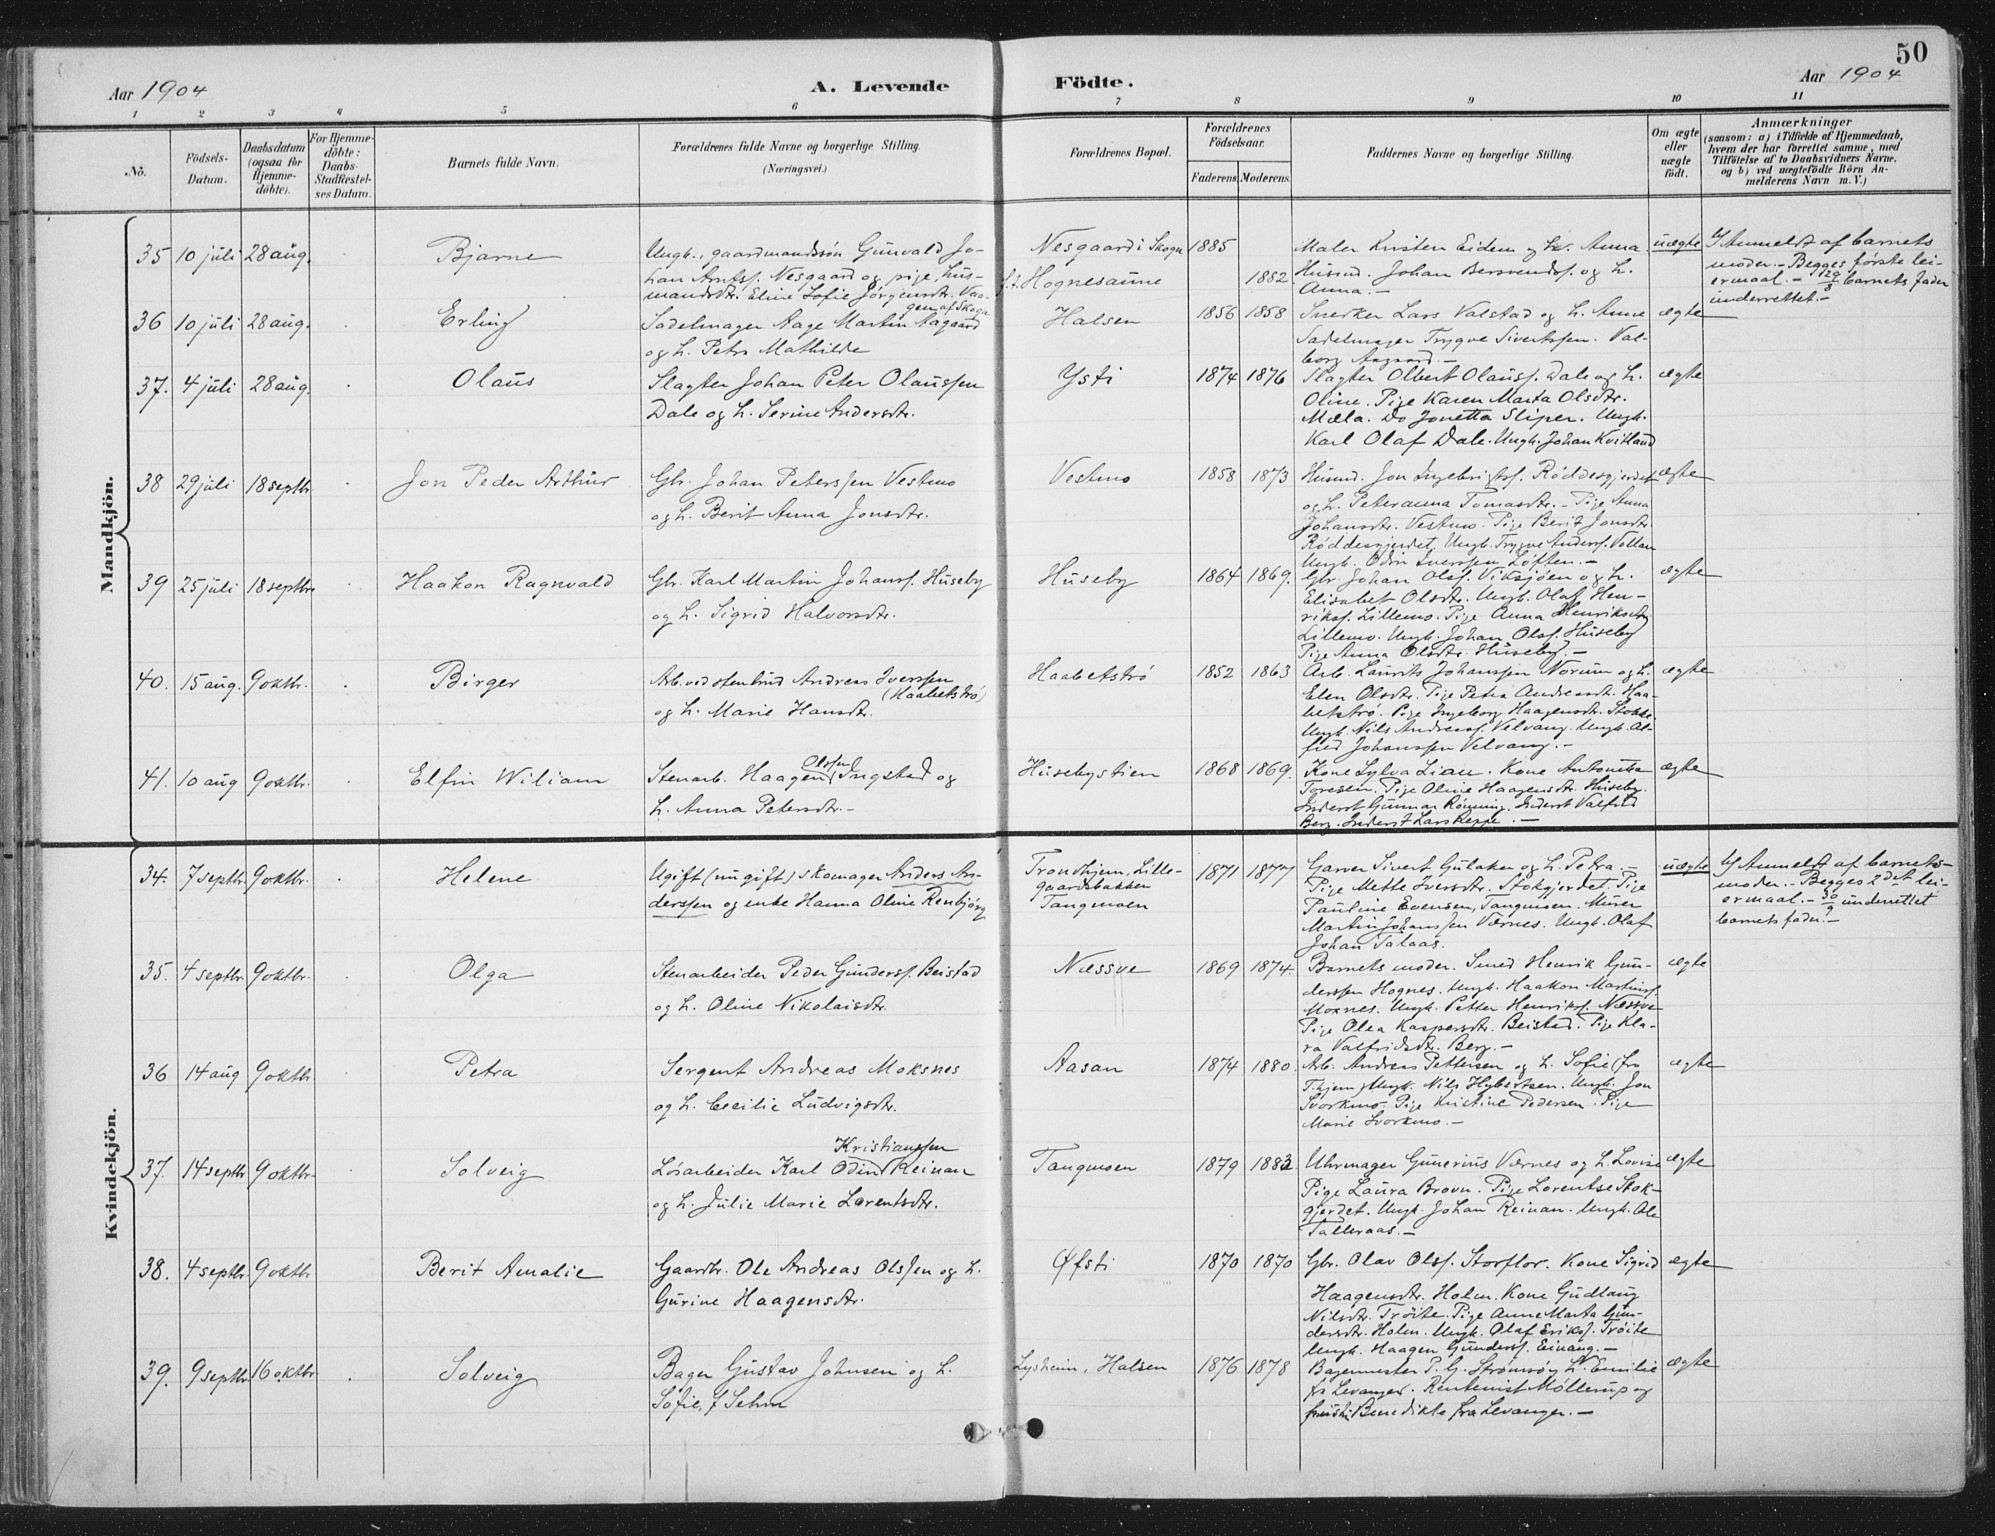 50
Aar 1904
A. Levende
Födte.
Aar 1904
1 2 3 4 5 6 7 8 9 10 11
No.
Födsels-Datum.
Daabsdatum (ogsaa for Hjemme-döbte).
For Hjemme-döbte: Daabs-Stadfæstelses Datum.
Barnets fulde Navn.
Forældrenes fulde Navne og borgerlige Stilling.
(Næringsvei.)
Forældrenes Bopæl.
Forældrenes Födselsaar.
Faderens. Moderens.
Faddernes Navne og borgerlige Stilling.
Om ægte eller uægte födt.
Anmærkninger
(saasom: a) i Tilfælde af Hjemmedaab,
hvem der har forrettet samme, med
Tilföielse af to Daabsvidners Navne.
og b) ved uægtefödte Börn An-
melderens Navn m. V.)
Mandkjön.
35 10 juli 28 aug. Bjarne
Ungk., gaardmandssøn Gunvald Jo-
han Arntsf. Nesgaard og pige, hus-
mandsdtr. Eline Sofie Jørgensdtr.
gen af Skogn
Nesgaard i Skogn
f.t. Hognesaune
1885 1882
Maler Kristen Eidem og h. Anna.
Husmd. Johan Bersvendsf. og h.
Anna.-
uægte
Anmeldt af barnets
moder.- Begges første lei-
ermaal.- 29/8 barnets fader
underrettet.-
36 10 juli 28 aug. Erling
Sadelmager Aage Martin Aagaard
og h. Petra Mathilde
Halsen
1856 1858
Snerker Lars Valstad og h. Anne
Sadelmager Trygve Sivertssen. Val-
borg Aagaard.-
ægte
37. 4 juli 28 aug. Olaus
Slagter Johan Peter Olaussen
Dale og h. Serine Andersdtr.
Ysti
1874 1876
Slagter Olbert Olausf. Dale og h.
Oline. Pige Karen Marta Olsdtr.
Mæla. Do Jonetta Sliper. Ungk.
Karl Olaf Dale. Ungk. Johan Kvitland
ægte
38 29 juli 18 septbr. Jon Peder Arthur
Gbr. Johan Peterssen Vestmo
og h. Berit Anna Jonsdtr.
Vestmo
1858 1873
Husmd. Jon Ingebrigtsf. Røddesgjerdet
og h. Peteranna Tomasdtr.- Pige Anna
Johansdtr. Vestmo. Pige Berit Jonsdtr.
Røddesgjerdet. Ungk. Trygve Andersf. Vollan
Ungk. Odin Iverssen Loften.-
ægte
39 25 juli 18 septbr. Haakon Ragnvald
Gbr. Karl Martin Johansf. Huseby
og h. Sigrid Halvorsdtr.
Huseby
1864 1869.
Gbr. Johan Olsf. Viksjøen og h.
Elisabet Olsdtr. Ungk. Olaf Hen-
riksf. Lillemo. Pige Anna Henriksdtr.
Lillemo. Ungk. Johan Olsf. Huseby
Pige Anna Olsdtr. Huseby.-
ægte
40. 15 aug. 9 oktbr. Birger
Arb. ved stenbrud Andreas Iverssen
(Haabetstrø)
og h. Marie Hansdtr.
Haabetstrø
1852 1863
Arb. Laurits Johanssen Norum og h.
Elen Olsdtr. Pige Petra Andreasdtr. Haa-
betstrø. Pige Ingeborg Haagensdtr. Stokke.
Ungk. Nils Andreasf. Velvang. Ungk. Al-
fred Johanssen Velvang.-
ægte
41. 10 aug 9 oktbr. Elfin Wiliam
Stenarb. Haagen Olssen Ingstad og
h. Anna Petersdtr.-
Husebystien
1868 1869.
Kone Sylva Lian. Kone Antonette
Toresen. Pige Oline Haagensdtr. Huseby.
Inderst Gunnar Rønning. Inderst Valfrid
Berg. Inderst Lars Reppe.-
ægte
Kvindekjön.
34. 7 septbr. 9 oktbr. Helene
Ugift (ungift) skomager Anders An-
derssen og enke Hanna Oline Renbjørg
Trondhjem, Lille-
gaardsbakken
Tangmoen
1871 1877
Garver Sivert Gulaker og h. Petra.-
Pige Mette Iversdtr. Stokgjerdet. Pige
Pauline Evensen, Tangmoen. Murer
Martin Johanssen Værnes. Ungk. Olaf
Johan Talaas.
uægte
Anmeldt af barnets
moder.- Begges 2det lei-
ermaal.- 30/9 underrettet
barnets fader.-
35. 4 septbr. 9 oktbr. Olga
Stenarbeider Peder Gundersf. Beistad
og h. Oline Nikolaisdtr.
Næssve
1869 1874.
Barnets moder. Smed Henrik Gun-
derssen Hognes. Ungk. Haakon Martinsf.
Moxnes. Ungk. Petter Henriksf. Næssve
Pige Olea Kaspersdtr. Beistad. Pige Kla-
ra Valfridsdtr. Berg.-
ægte
36 14 aug 9 oktbr Petra
Sergent Andreas Moksnes
og h. Cecilie Ludvigsdtr.
Aasan
1874 1880
Arb. Andreas Pettersen og h. Sofie (fra
T.hjem) Ungk. Nils Hybertsen. Ungk. Jon
Svorkmo. Pige Kristine Pedersen. Pige
Marie Svorkmo.-
ægte
37. 14 septbr 9 oktbr. Solveig
Kristianssen
Løsarbeider Karl Odin Reinan
og h. Julie Marie Lorentsdtr.
Tangmoen
1879 1883
Uhrmager Gunerius Værnes og h. Lovise
Pige Laura Brovn. Pige Lorentse Stok-
gjerdet. Ungk. Johan Reinan. Ungk. Ole
Talleraas.-
ægte
38. 4 septbr. 9 oktbr Berit Amalie
Gaardbr. Ole Andreas Olssen og h.
Gurine Haagensdtr.
Øfsti
1870 1870
Gbr. Olav Olsf. Storflor. Kone Sigrid
Haagensdtr. Holm. Kone Gudlaug
Nilsdtr. Trøite. Pige Anne Marta Gun-
dersdtr. Holm. Ungk. Olaf Eriksf. Trøite
Ungk. Haagen Gundersf. Einang.-
ægte
39. 9 septbr 16 oktbr. Solveig
Bager Gustav Johnsen og h.
Sofie, f Sehm
Lysheim, Halsen
1876 1878
Bagermester P. G. Strømsøy h. Emilie
fr Levanger. Rentenist Møllerup og
Benedikte fra Levanger.-
ægte